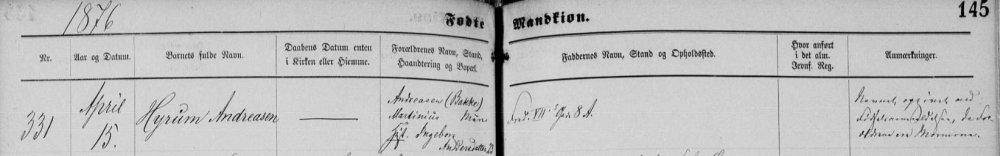 1876
Fødte Mandkiøn.
145
Nr.
Aar og Datum.
Barnets fulde Navn.
Daabens Datum enten
i Kirken eller Hjemme.
Forældrenes Navn, Stand,
Haandtering og Bopæl.
Faddernes Navn, Stand og Opholdssted.
Hvor anført
i det alm.
Jevnf. Reg.
Anmærkninger.
331
April
15.
Hyrum Andreasen
Andreasen (Bakke)
Martinius
Ingeborg
Fred. VII
8 A.
Navnet opgivet ved
da For-
ældrene Mormoner.